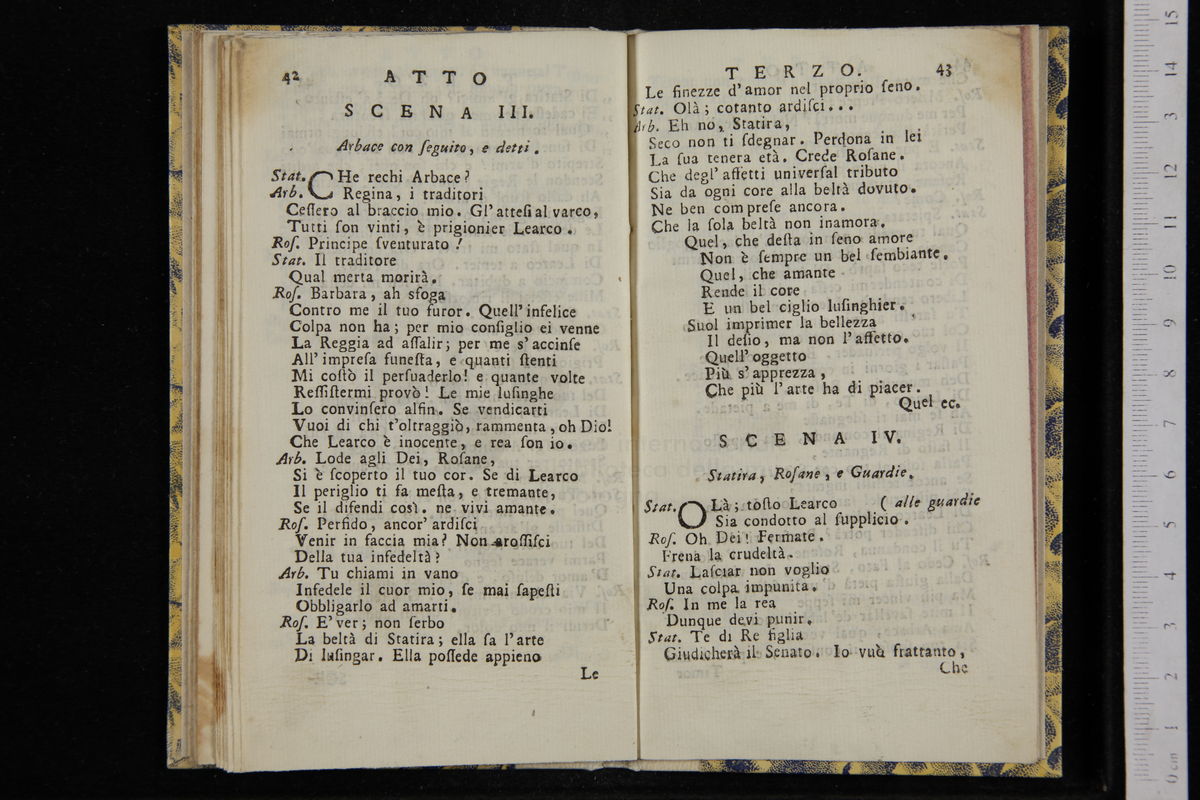 42 ATTO
SCENA III.
Arbace con ſeguito, e detti.
Stat. CHe rechi Arbace?
Arb. Regina, i traditori
Ceſſero al braccio mio. Gl'atteſi al varco,
Tutti ſon vinti, è prigionier Learco.
Roſ. Principe ſventurato!
Stat. Il traditore
Qual merta morirà.
Roſ. Barbara, ah sfoga
Contro me il tuo furor. Quell'infelice
Colpa non ha; per mio conſiglio ei venne
La Reggia ad aſſalir; per me s'accinſe
All'impreſa funeſta, e quanti ſtenti
Mi coſtò il perſuaderlo! e quante volte
Reſſiſtermi provò! Le mie luſinghe
Lo convinſero alfin. Se vendicarti
Vuoi di chi t'oltraggiò, rammenta, oh Dio!
Che Learco è inocente, e rea ſon io.
Arb. Lode agli Dei, Roſane,
Si è ſcoperto il tuo cor. Se di Learco
Il periglio ti fa meſta, e tremante,
Se il difendi così. ne vivi amante.
Roſ. Perfido, ancor' ardiſci
Venir in faccia mia? Non aroſſiſci
Della tua infedeltà?
Arb. Tu chiami in vano
Infedele il cuor mio, ſe mai ſapeſti
Obbligarlo ad amarti.
Roſ. E' ver; non ſerbo
La beltà di Statira; ella ſa l'arte
Di luſingar. Ella poſſede appieno
Le
TERZO. 43
Le finezze d'amor nel proprio ſeno.
Stat. Olà; cotanto ardiſci...
Arb. Eh nò, Statira,
Seco non ti ſdegnar. Perdona in lei
La ſua tenera età. Crede Roſane.
Che degl'affetti univerſal tributo
Sia da ogni core alla beltà dovuto.
Ne ben compreſe ancora.
Che la ſola beltà non inamora.
Quel, che deſta in ſeno amore
Non è ſempre un bel ſembiante.
Quel, che amante
Rende il core
E un bel ciglio luſinghier.
Suol imprimer la bellezza
Il deſio, ma non l'affetto.
Quell'oggetto
Più s'apprezza,
Che più l'arte ha di piacer.
Quel ec.
SCENA IV.
Statira, Roſane, e Guardie.
Stat. OLà; toſto Learco ( alle guardie
Sia condotto al ſupplicio.
Roſ. Oh Dei! Fermate.
Frena la crudeltà.
Stat. Laſciar non voglio
Una colpa impunita.
Roſ. In me la rea
Dunque devi punir.
Stat. Te di Re figlia
Giudicherà il Senato. Io vuò frattanto,
Che
0 cm 1 2 3 4 5 6 7 8 9 10 11 12 13 14 15